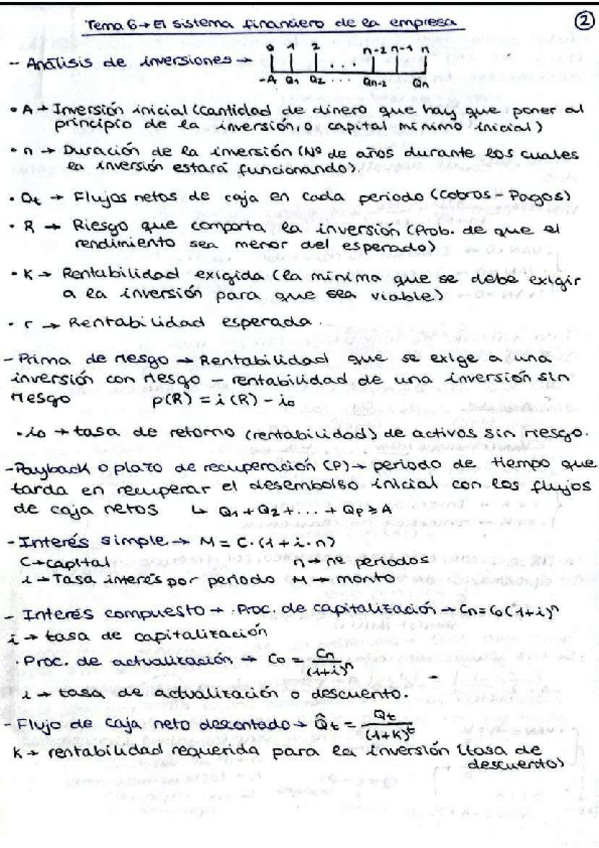 Tema 6 → El sistema financiero de la empresa ②
0 1 2 n-2 n-1 n
-- Análisis de inversiones →
-A Q1 Q2 ... Qn-2 Qn
• A → Inversión inicial (cantidad de dinero que hay que poner al
principio de la inversión, o capital mínimo inicial)
• n → Duración de la inversión (Nº de años durante los cuales
la inversión estará funcionando).
• Qt → Flujos netos de caja en cada periodo (Cobros - Pagos)
• R → Riesgo que comporta la inversión (Prob. de que el
rendimiento sea menor del esperado)
• K → Rentabilidad exigida (la mínima que se debe exigir
a la inversión para que sea viable)
• r → Rentabilidad esperada.
- Prima de riesgo → Rentabilidad que se exige a una
inversión con riesgo - rentabilidad de una inversión sin
riesgo p(R) = i(R) - i₀
• i₀ → tasa de retorno (rentabilidad) de activos sin riesgo.
- Payback o plazo de recuperación (P) → periodo de tiempo que
tarda en recuperar el desembolso inicial con los flujos
de caja netos ↳ Q1 + Q2 + ... + Qp ≥ A
- Interés simple → M = C · (1 + i · n)
C → capital n → nº periodos
i → Tasa interés por periodo M → monto
- Interés compuesto → · Proc. de capitalización → Cn = C₀(1+i)ⁿ
i → tasa de capitalización
· Proc. de actualización → C₀ = Cn/(1+i)ⁿ
i → tasa de actualización o descuento.
- Flujo de caja neto descontado → Q̂t = Qt/(1+K)ᵗ
K → rentabilidad requerida para la inversión (tasa de
descuento)